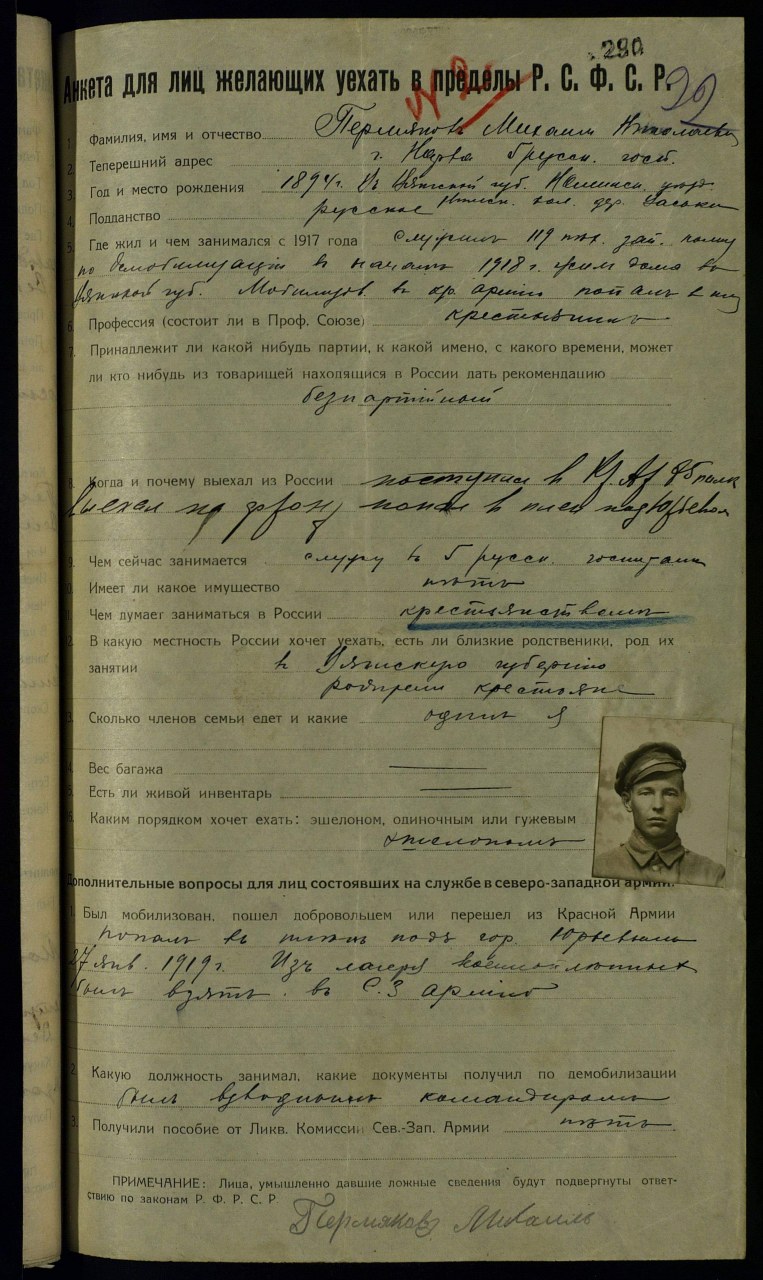 290
Анкета для лиц желающих уехать в пределы Р. С. Ф. С. Р.
№ 2
1. Фамилия, имя и отчество Пермяковъ Михаил Николаевич
2. Теперешний адрес г. Нарва 5 русск. госп.
3. Год и место рождения 1894 г. Въ Вятской губ. Нолинск. уезд.
вол. дер.
4. Подданство русское
5. Где жил и чем занимался с 1917 года служилъ 119 пех. зап. полку
по демобилизации в началъ 1918 г. жил дома въ
Вятской губ. Мобилизов. въ кр. армiю попалъ в плен
6. Профессия (состоит ли в Проф. Союзе) крестьянинъ
7. Принадлежит ли какой нибудь партии, к какой имено, с какого времени, может
ли кто нибудь из товарищей находящися в России дать рекомендацию
безпартiйный
8. Когда и почему выехал из России поступил в Кр Ар полк
Выехал на фронт попал в плен под Юрьевом
9. Чем сейчас занимается служу въ 5 русск. госпитали
10. Имеет ли какое имущество нѣтъ
11. Чем думает заниматься в России крестьянствомъ
12. В какую местность России хочет уехать, есть ли близкие родственики, род их
занятии в Вятскую губернiю
родители крестьяне
13. Сколько членов семьи едет и какие одинъ я
14. Вес багажа
15. Есть ли живой инвентарь
16. Каким порядком хочет ехать: эшелоном, одиночным или гужевым
эшелономъ
Дополнительные вопросы для лиц состоявших на службе в северо-западной армии.
1. Был мобилизован, пошел добровольцем или перешел из Красной Армии
попалъ въ плѣнъ подъ гор. Юрьевымъ
27 янв. 1919 г. Изъ лагеря военноплѣнных
былъ взятъ въ С.З армiю
2. Какую должность занимал, какие документы получил по демобилизации
былъ взводнымъ командиромъ
3. Получили пособие от Ликв. Комиссии Сев.-Зап. Армии нѣтъ
ПРИМЕЧАНИЕ: Лица, умышленно давшие ложные сведения будут подвергнуты ответ-
ствию по законам Р. Ф. Р. С. Р.
Пермяковъ Михаилъ